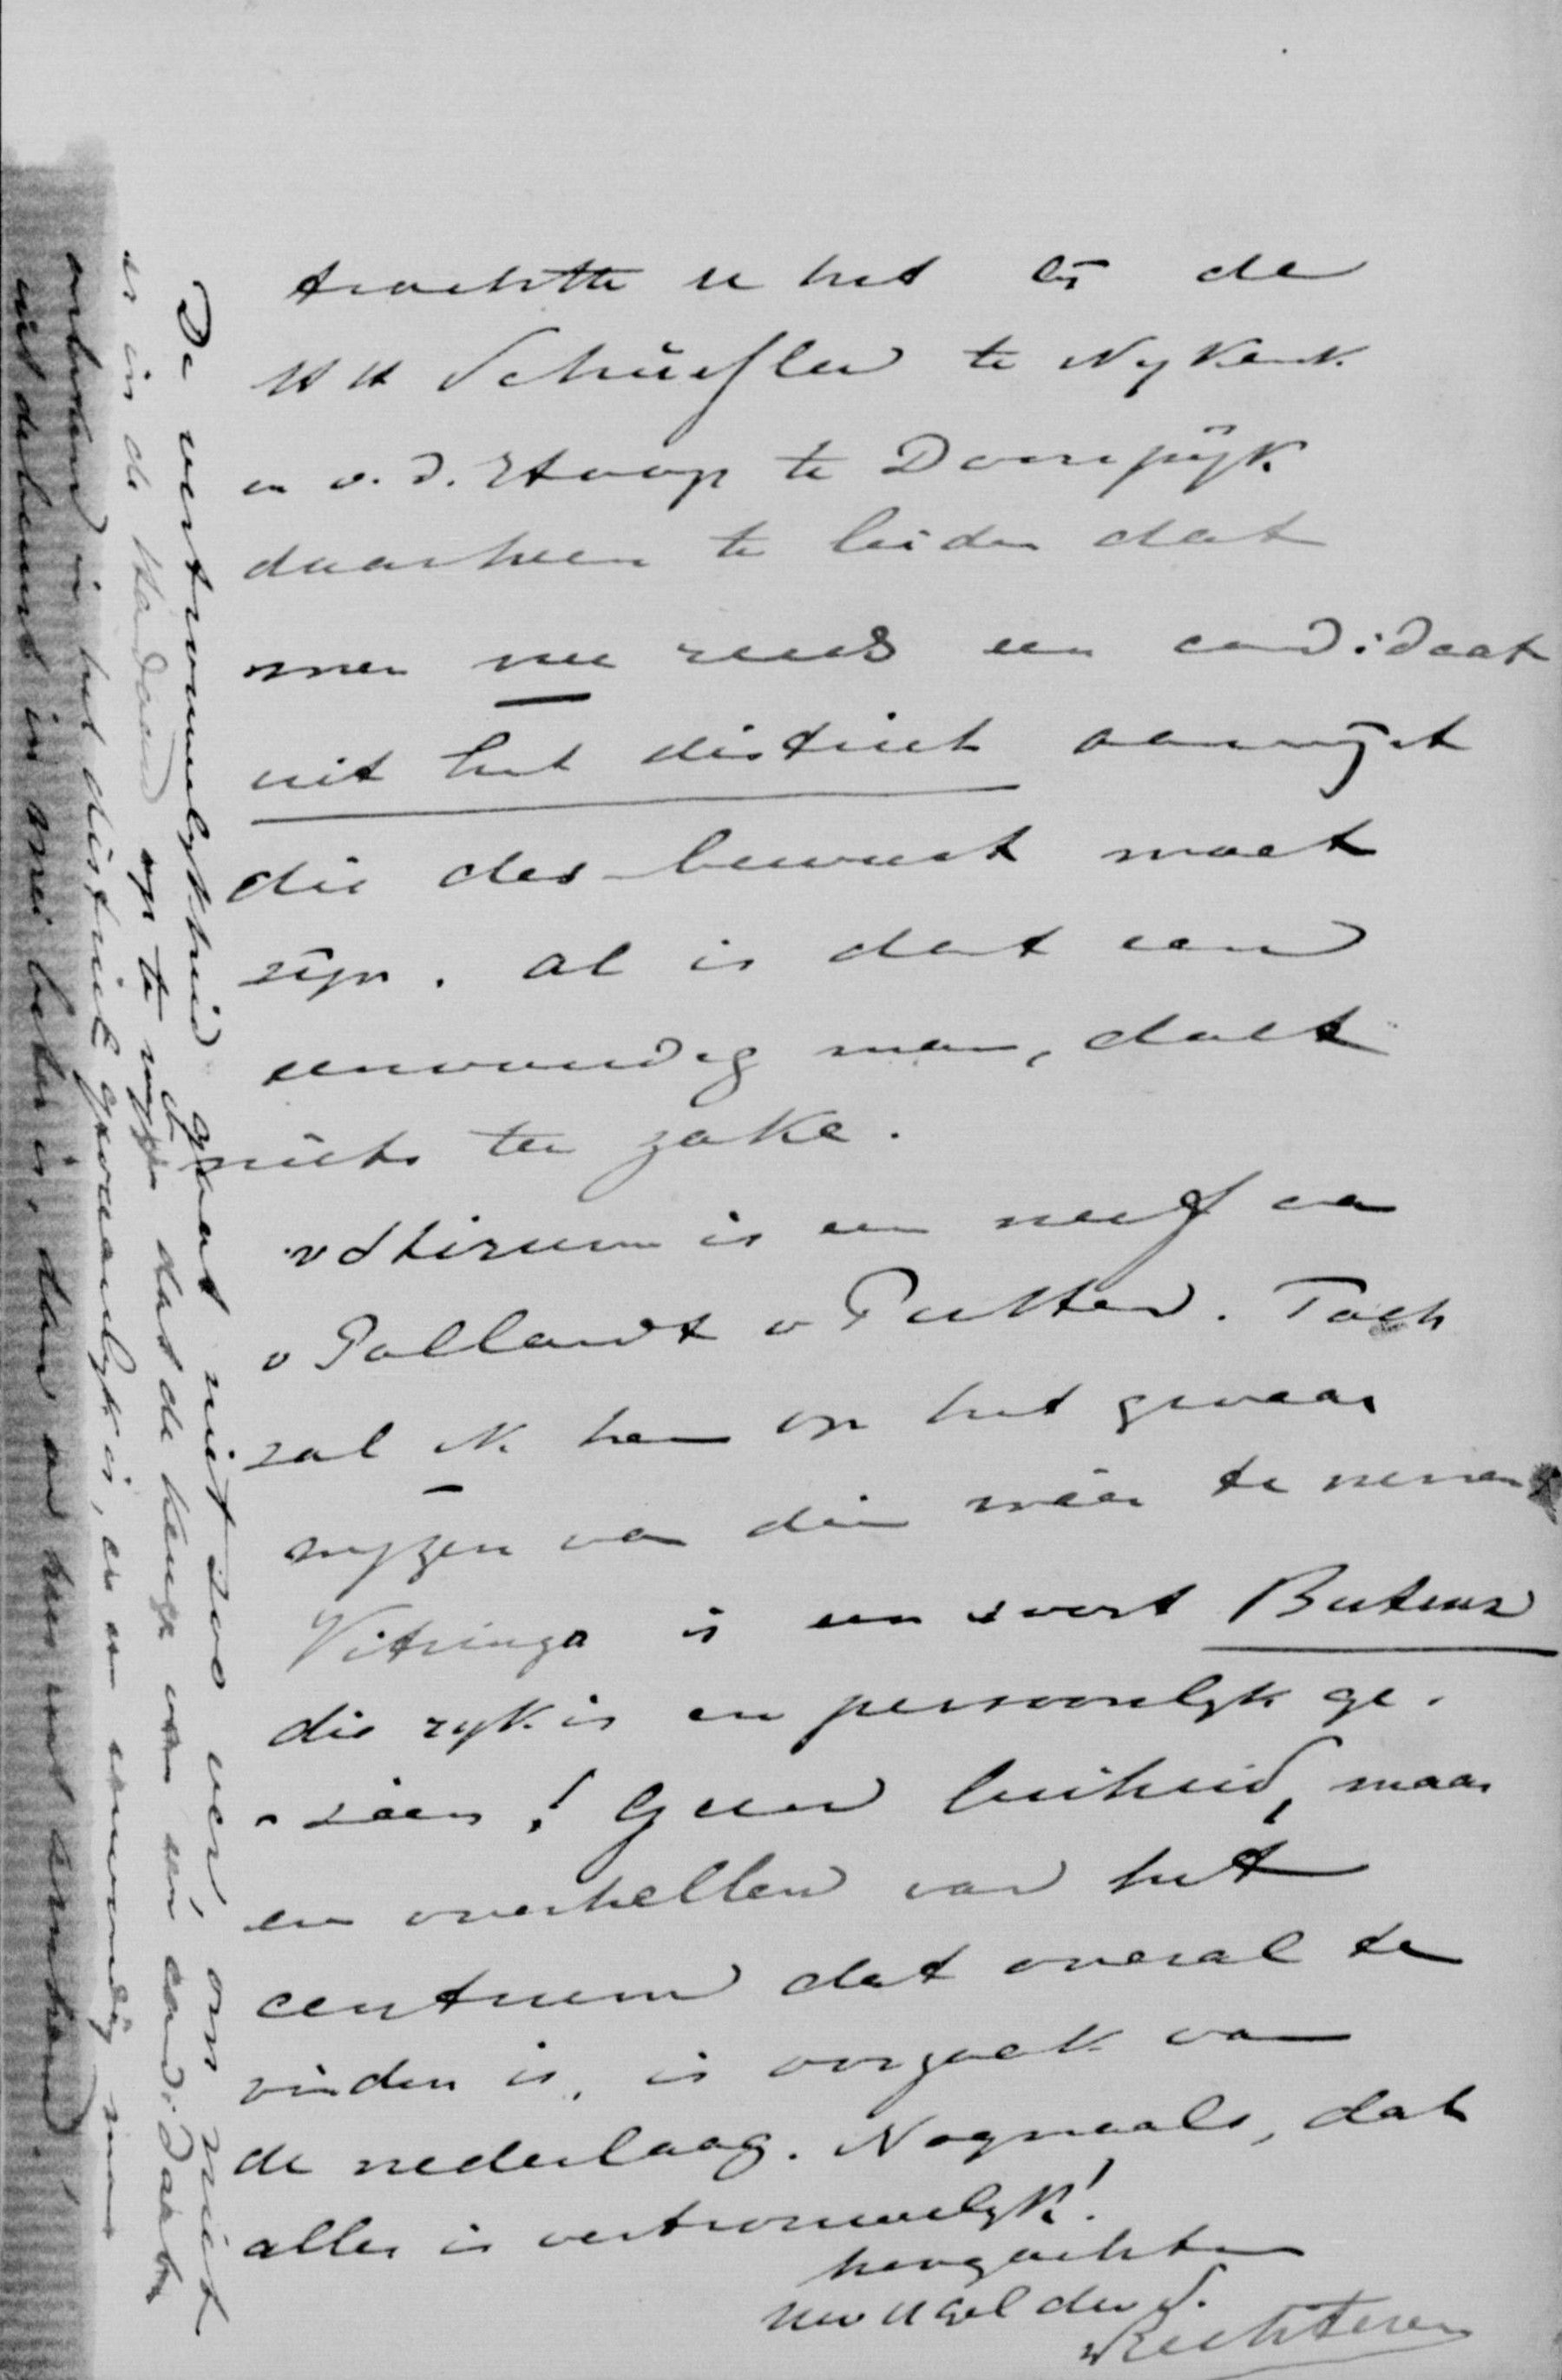 trachtte u het bij de
HH Schüssler te Nykerk
en v. d. Hoop te Doornspijk
daarheen te leiden dat
men nu reeds een candidaat
uit het district aanwijst
die des bewust moet
zijn. al is dat een
eenvoudig man, doet
niets ter zake.
v Limburg is een neef van
v Pallandt v Putten. Toch
zal ik hem op het gevaar
wyzen van dien man te nemen
Vitringa is een soort Buteux
die ryk is en persoonlyk ge-
zien! Geen luiheid, maar
en overhellen van het
centrum dat overal te
vinden is, is oorzaak van
de nederlaag. Nogmaals, dat
alles is vertrouwelyk!
hoogachtend
UwHgel dw d.
v Rechteren
De vertrouwelykheid gaat niet zoo ver, om niet
er in de Standaard op te wyzen dat de keuze van een candidaat
in het district zeer noodzakelyk is, en een eenvoudig man
uit dat district in mei beter is, dan